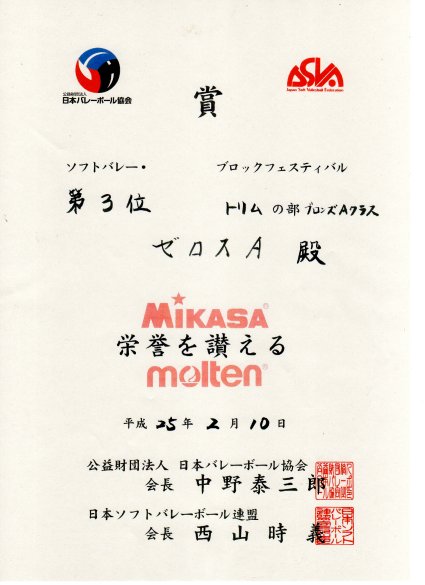 公益財団法人
日本バレーボール協会
JSVA
Japan Soft Volleyball Federation
賞
ソフトバレー・ ブロックフェスティバル
第3位 トリムの部 ブロンズAクラス
ゼロスA 殿
MIKASA
栄誉を讃える
molten
平成25年2月10日
公益財団法人 日本バレーボール協会
会長 中野泰三郎
日本ソフトバレーボール連盟
会長 西山時義